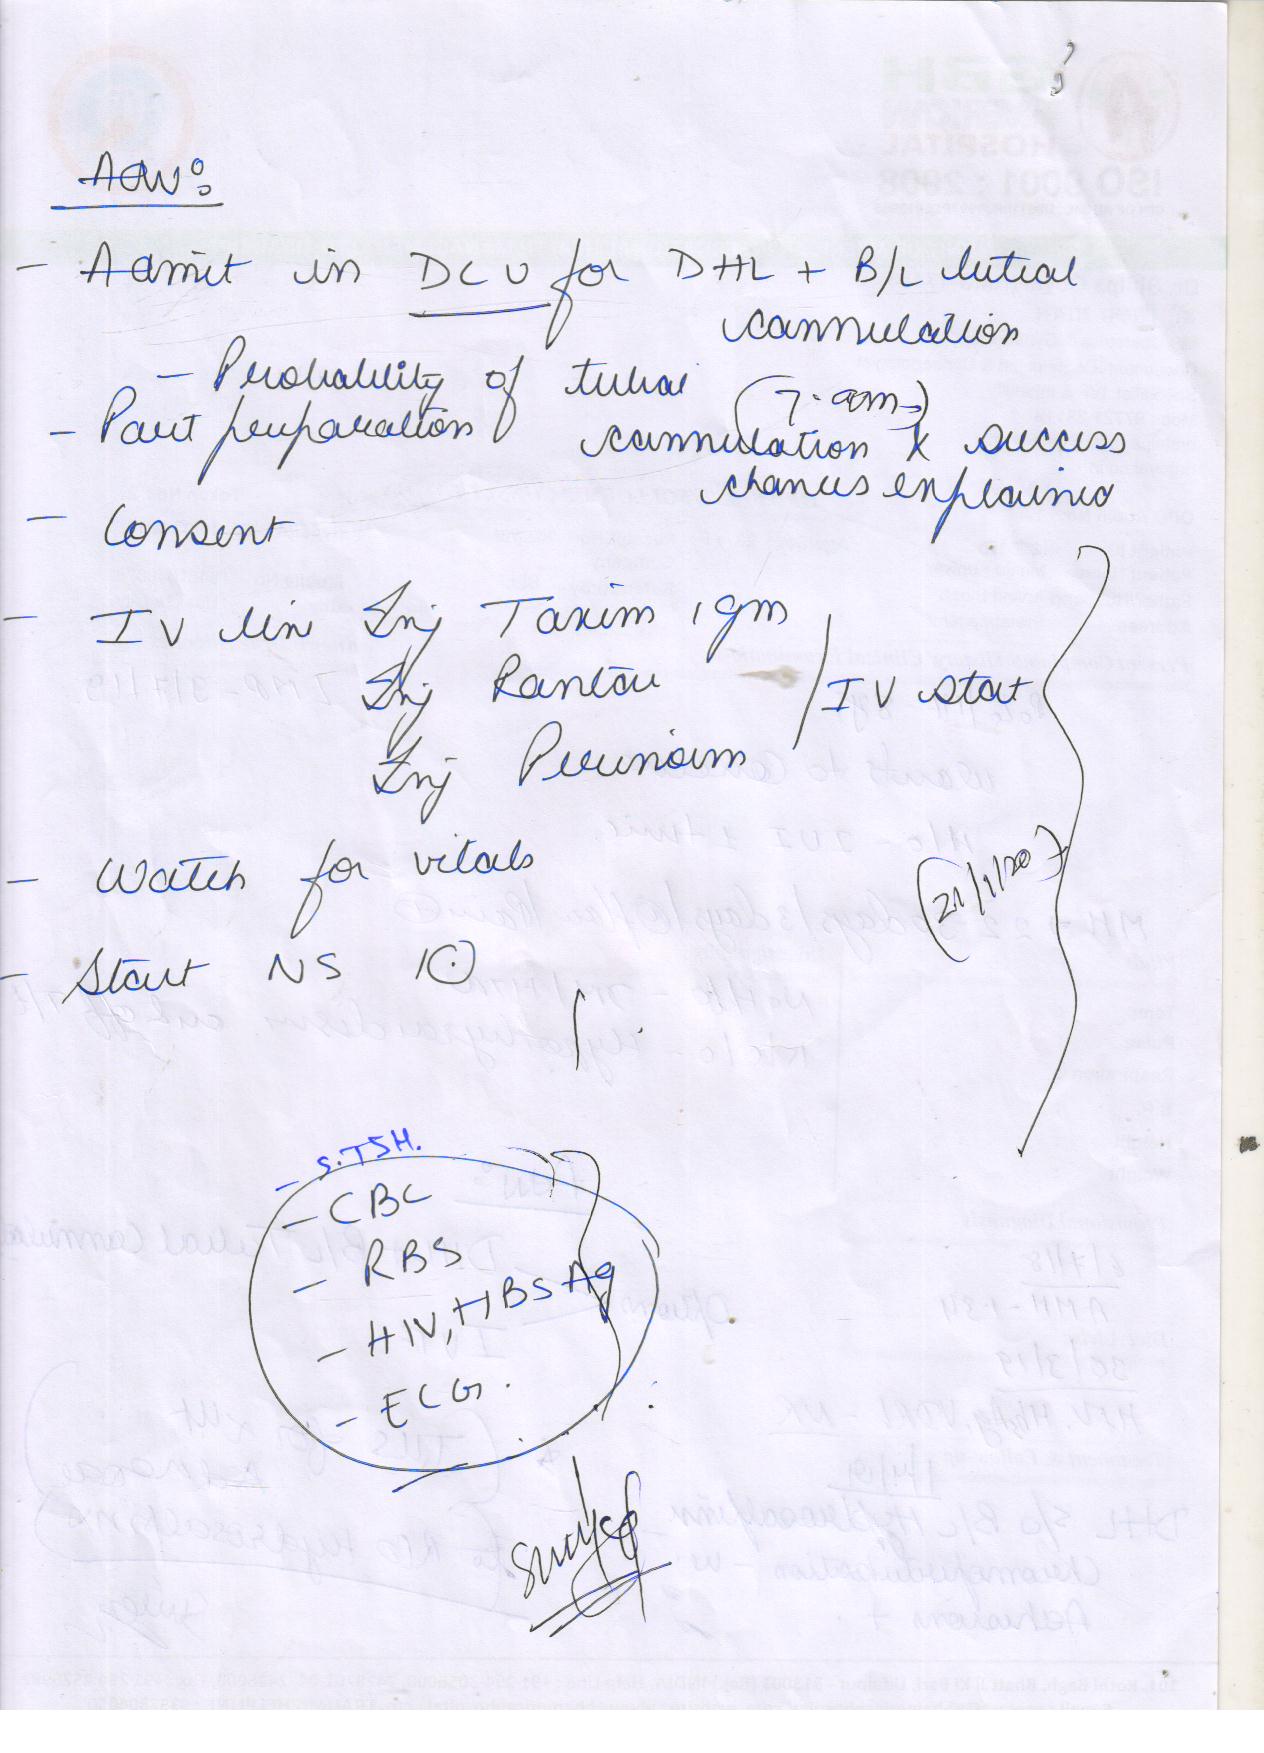 Adv:
- Admit in DCU for DHL + B/L tubal
cannulation
- Probability of tubal
(7. am)
- Part preparation
cannulation & success
chances explained
- Consent
- IV line Inj Taxim 1gm
Inj Rantac
IV stat
Inj Perinorm
- Watch for vitals
(21/1/20)
- Start NS
- S.TSH.
- CBC
- RBS
- HIV, HBSAg
- ECG.